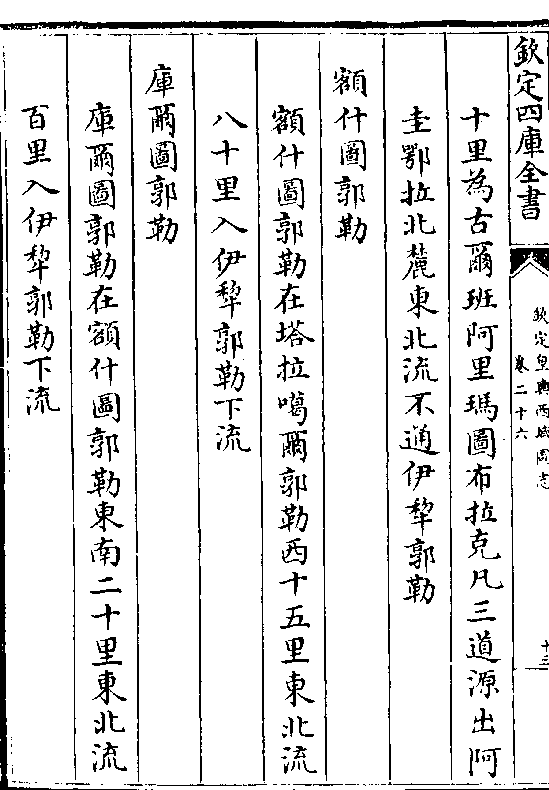 欽定四庫全書
欽定皇輿西域圖志
卷二十六
十三
十里為古爾班阿里瑪圖布拉克凡三道源出阿
圭鄂拉北麓東北流不通伊犂郭勒
額什圖郭勒
額什圖郭勒在塔拉噶爾郭勒西十五里東北流
八十里入伊犂郭勒下流
庫爾圖郭勒
庫爾圖郭勒在額什圖郭勒東南二十里東北流
百里入伊犂郭勒下流